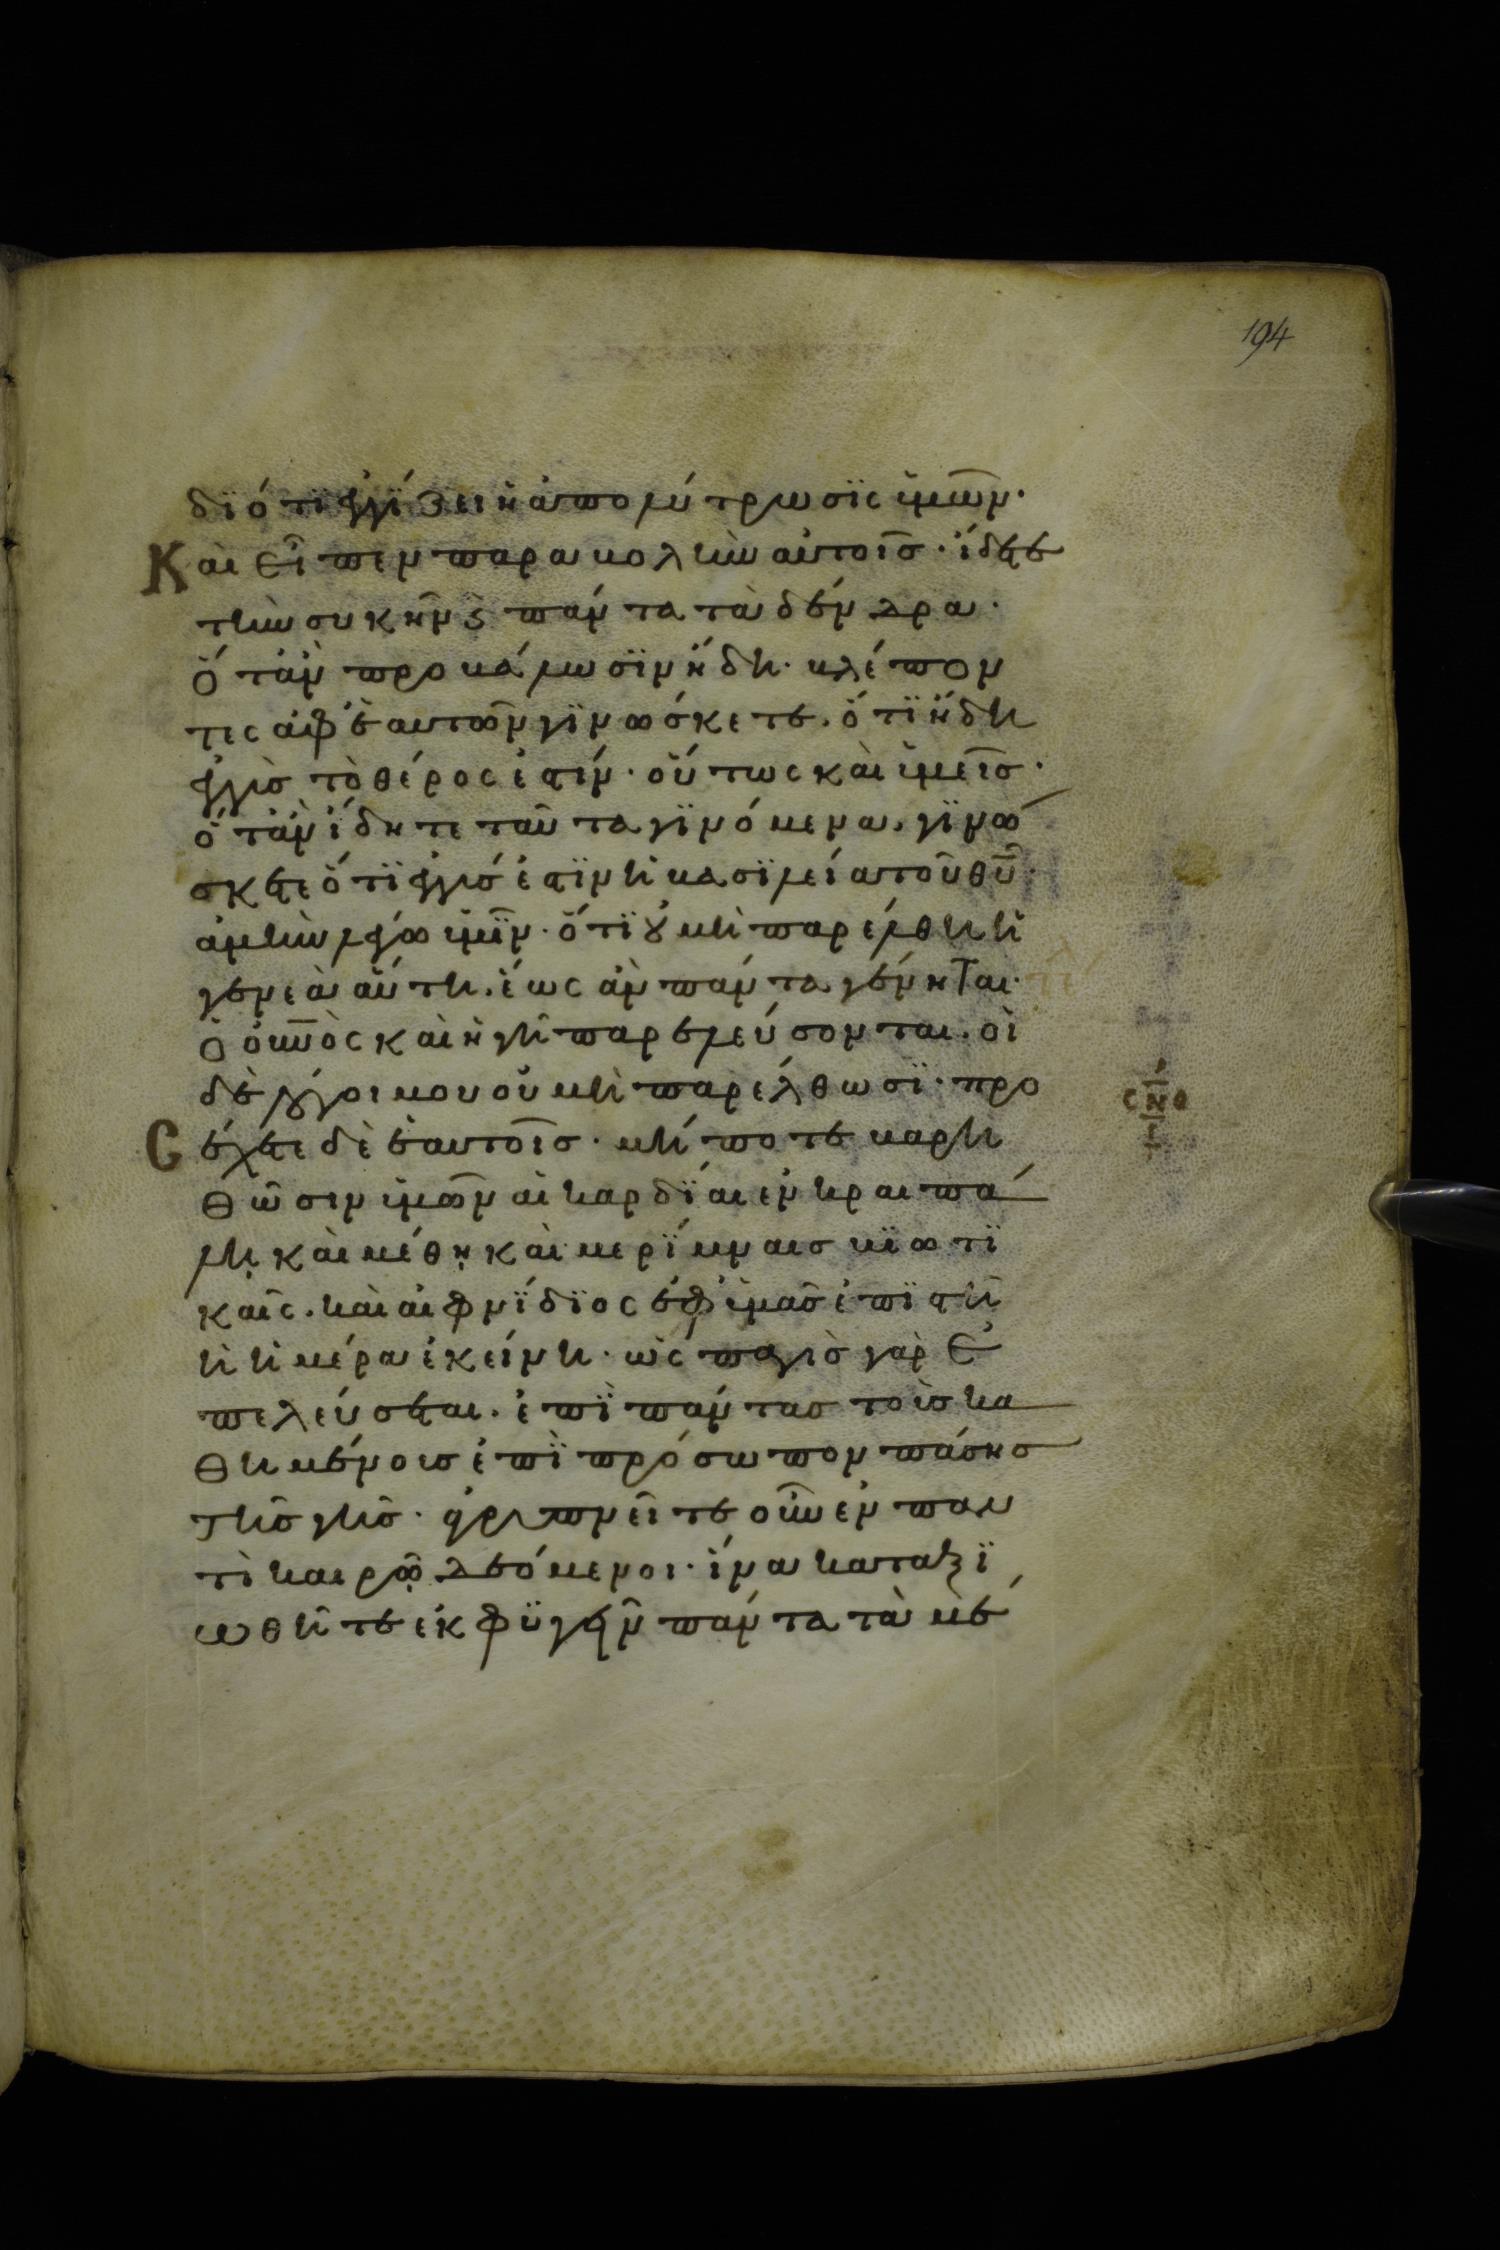 194
δϊότϊ ἐγγίζει ἡ ἀπολύτρωσϊς ὑμῶν·
Καὶ εἶπεν παραβολὴν αὐτοῖσ· ἴδετε
τὴν συκῆν ϗ πάντα τὰ δένδρα·
ὅτὰν προβάλωσϊν ἤδη· βλέπον
τες ἀφ' ἑαυτῶν γϊνώσκετε. ὅτϊ ἤδη
ἐγγὺσ τὸ θέρος ἐστίν· οὕτως καὶ ὑμεῖσ·
ὅτὰν ἴδητε ταῦτα γϊνόμενα. γϊνώ
σκετε ὅτϊ ἐγγύσ ἐστϊν ἡ βασϊλεία τοῦ θῦ·
ἀμὴν λέγω ὑμῖν· ὅτϊ οὐ μὴ παρέλθη ἡ
γενεὰ αὕτη. ἕως ἂν πάντα γένηται·
ὁ οὐνὸς καὶ ἡ γῆ παρελεύσονται. οἱ
δὲ λόγοι μου οὐ μὴ παρέλθωσϊ· προ
σέχετε δὲ ἑαυτοῖσ· μήποτε βαρη
θῶσιν ὑμῶν αἱ καρδίαι ἐν κραιπά
λῃ καὶ μέθῃ καὶ μερίμναισ βϊωτϊ
καῖς. καὶ αἰφνϊδϊος ἐφ' ὑμᾶσ ἐπϊστῆ
ἡ ἡμέρα ἐκείνη· ὡς παγὶσ γὰρ ἐ
πελεύσεται. ἐπϊ πάντασ τοὺσ κα
θημένουσ ἐπϊ πρόσωπον πάσησ
τῆσ γῆσ· ἀγρυπνεῖτε οὖν ἐν παν
τὶ καιρῷ δεόμενοι· ἵνα καταξϊ
ωθῆτε ἐκφϋγεῖν πάντα τὰ μέ